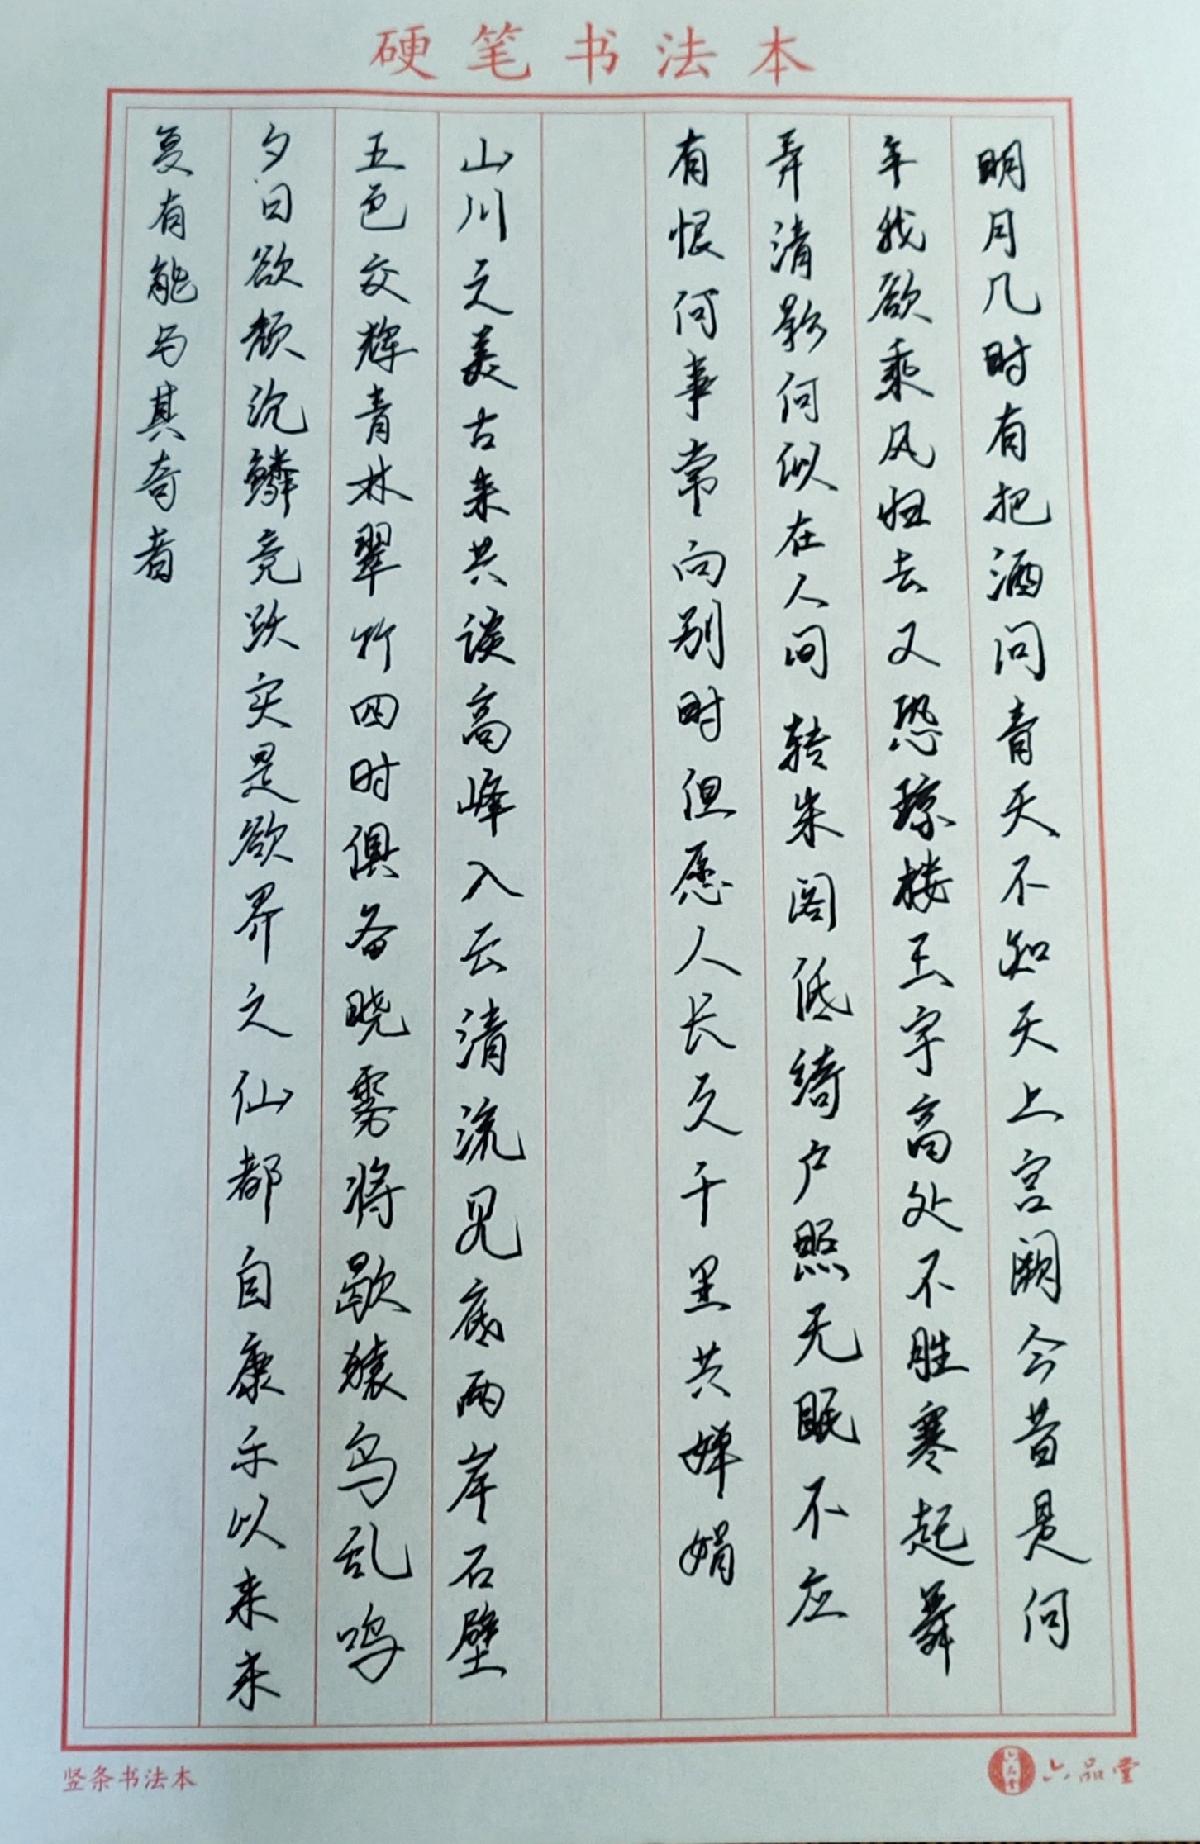 硬笔书法本
明月几时有把酒问青天不知天上宫阙今昔是何
年我欲乘风归去又恐琼楼玉宇高处不胜寒起舞
弄清影何似在人间转朱阁低绮户照无眠不应
有恨何事常向别时但愿人长久千里共婵娟
山川之美古来共谈高峰入云清流见底两岸石壁
五色交辉青林翠竹四时俱备晓雾将歇猿鸟乱鸣
夕日欲颓沉鳞竞跃实是欲界之仙都自康乐以来来
复有能与其奇者
竖条书法本
六品堂